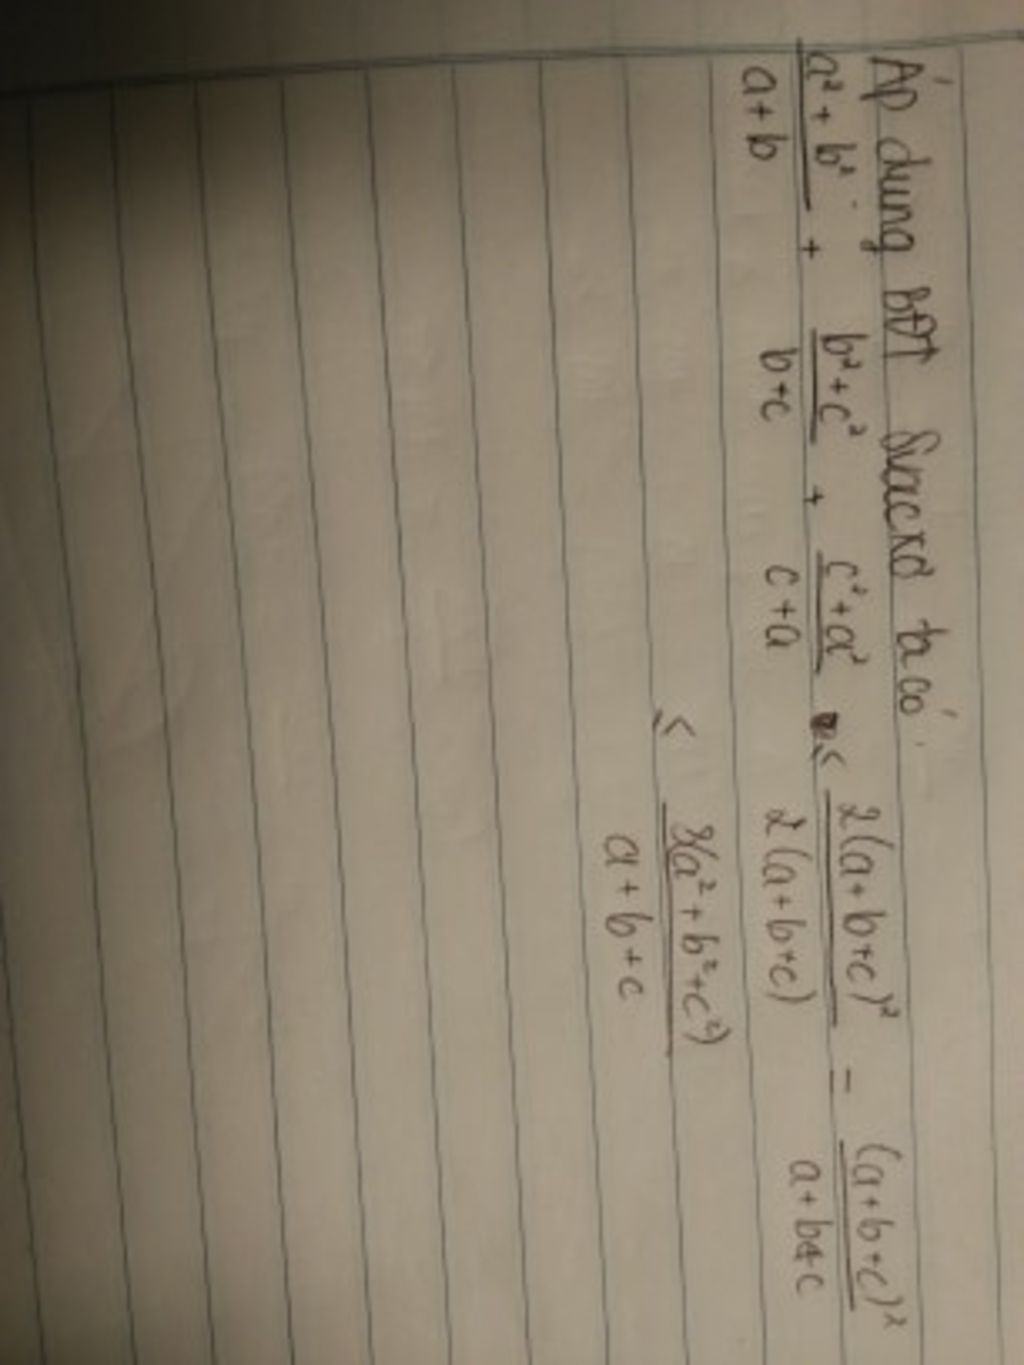 Áp dụng BĐT Svacxơ ta có
a² + b² / a + b + b² + c² / b + c + c² + a² / c + a ≤ 2(a + b + c)² / 2(a + b + c) = (a + b + c)² / a + b + c
≤ 3(a² + b² + c²) / a + b + c